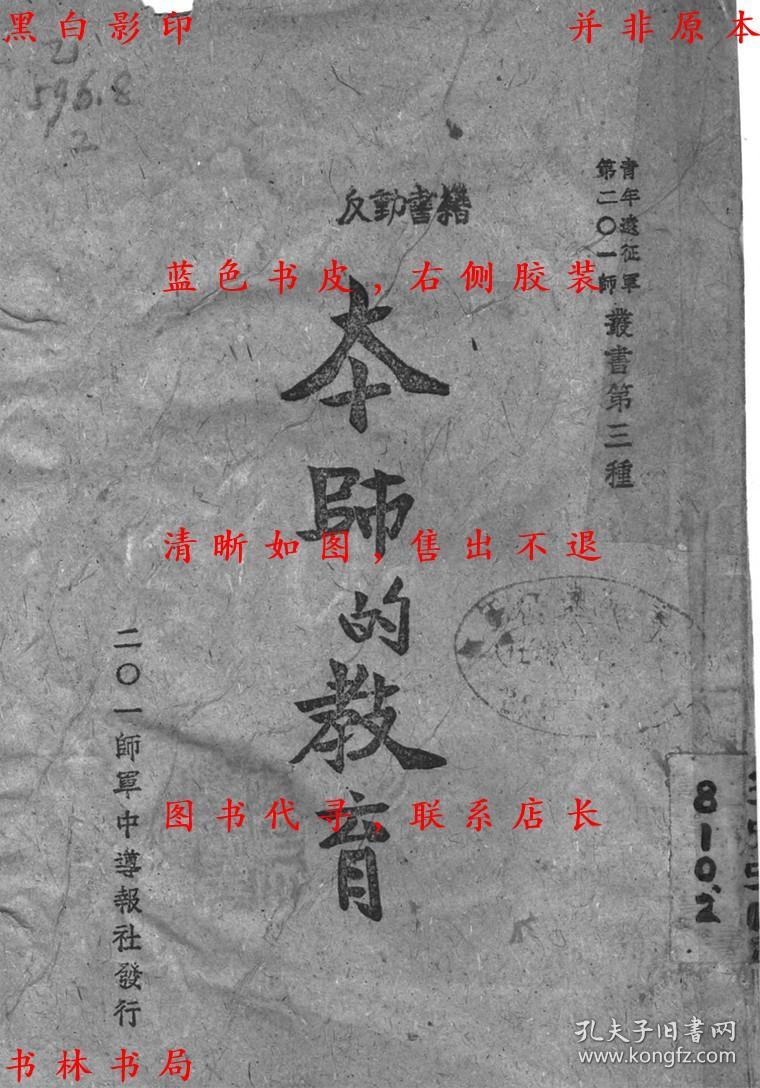 黑白影印
并非原本
596.8
2
反動書籍
青年遠征軍
第二〇一師
叢書第三種
蓝色书皮，右侧胶装
本師的教育
清晰如图，售出不退
图书代寻，联系店长
二〇一師軍中導報社發行
810.2
书林书局
孔夫子旧书网
www.kongfz.com